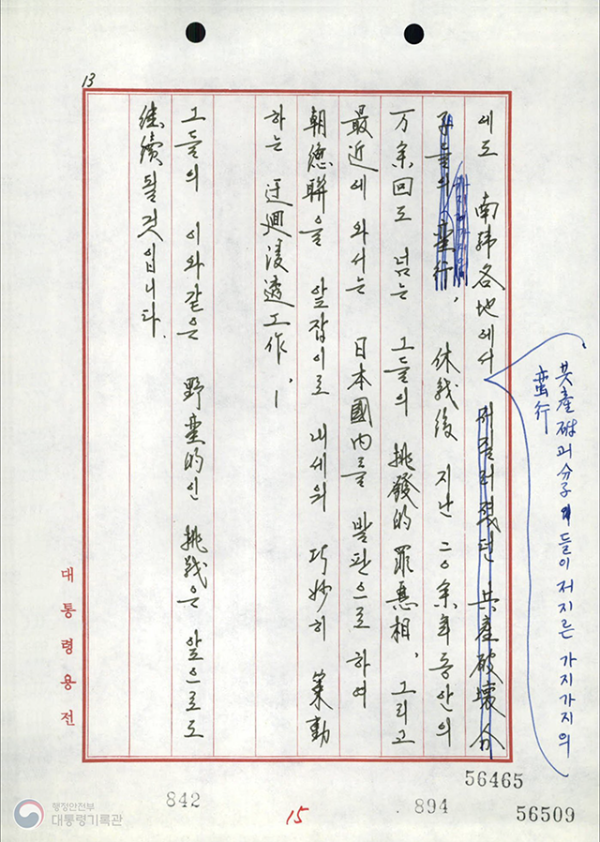 13
에도 南韓各地에서 저질러졌던 共產破壞分
共產破괴分子들이 저지른 가지가지의
蛮行
子들의 蛮行, 休戰後 지난 二0余年동안의
万余回도 넘는 그들의 挑發的 罪惡相, 그리고
最近에 와서는 日本國內를 발판으로 하여
朝總聯을 앞잡이로 내세워 巧妙히 策動
하는 迂廻浸透工作,
그들의 이와같은 野蛮的인 挑戰은 앞으로도
繼續될것입니다.
대통령용전
56465
842
15
894
56509
행정안전부
대통령기록관